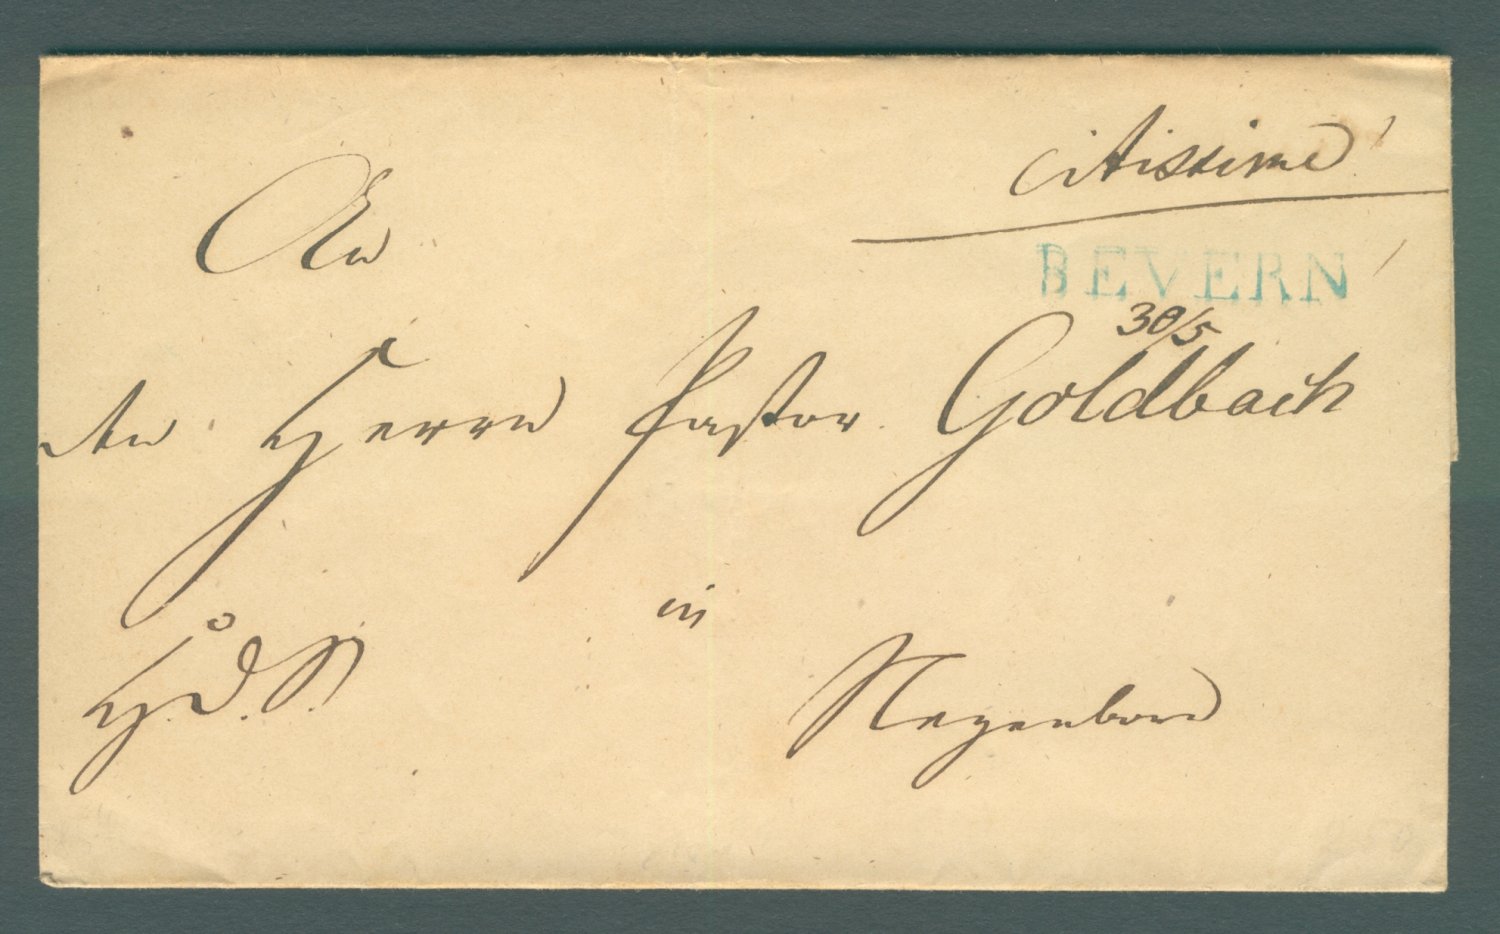 citissime!
BEVERN
30/5
An
den Herrn Pastor Goldbach
in
H.d.S.
Negenborn